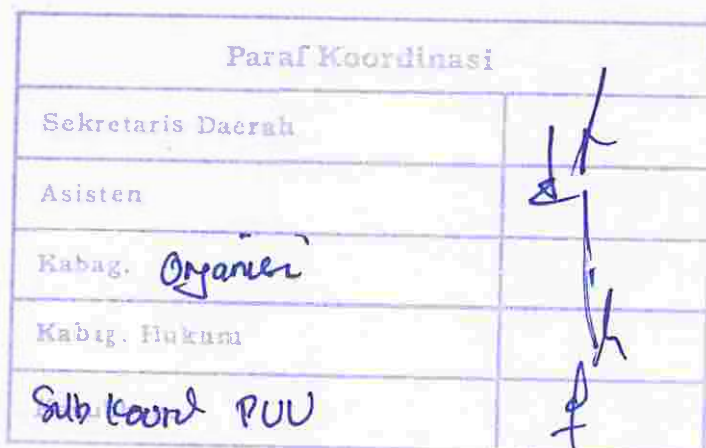 Paraf Koordinasi
Sekretaris Daerah
Asisten
Kabag. Organisi
Kabag. Hukum
Sub Koord PUU